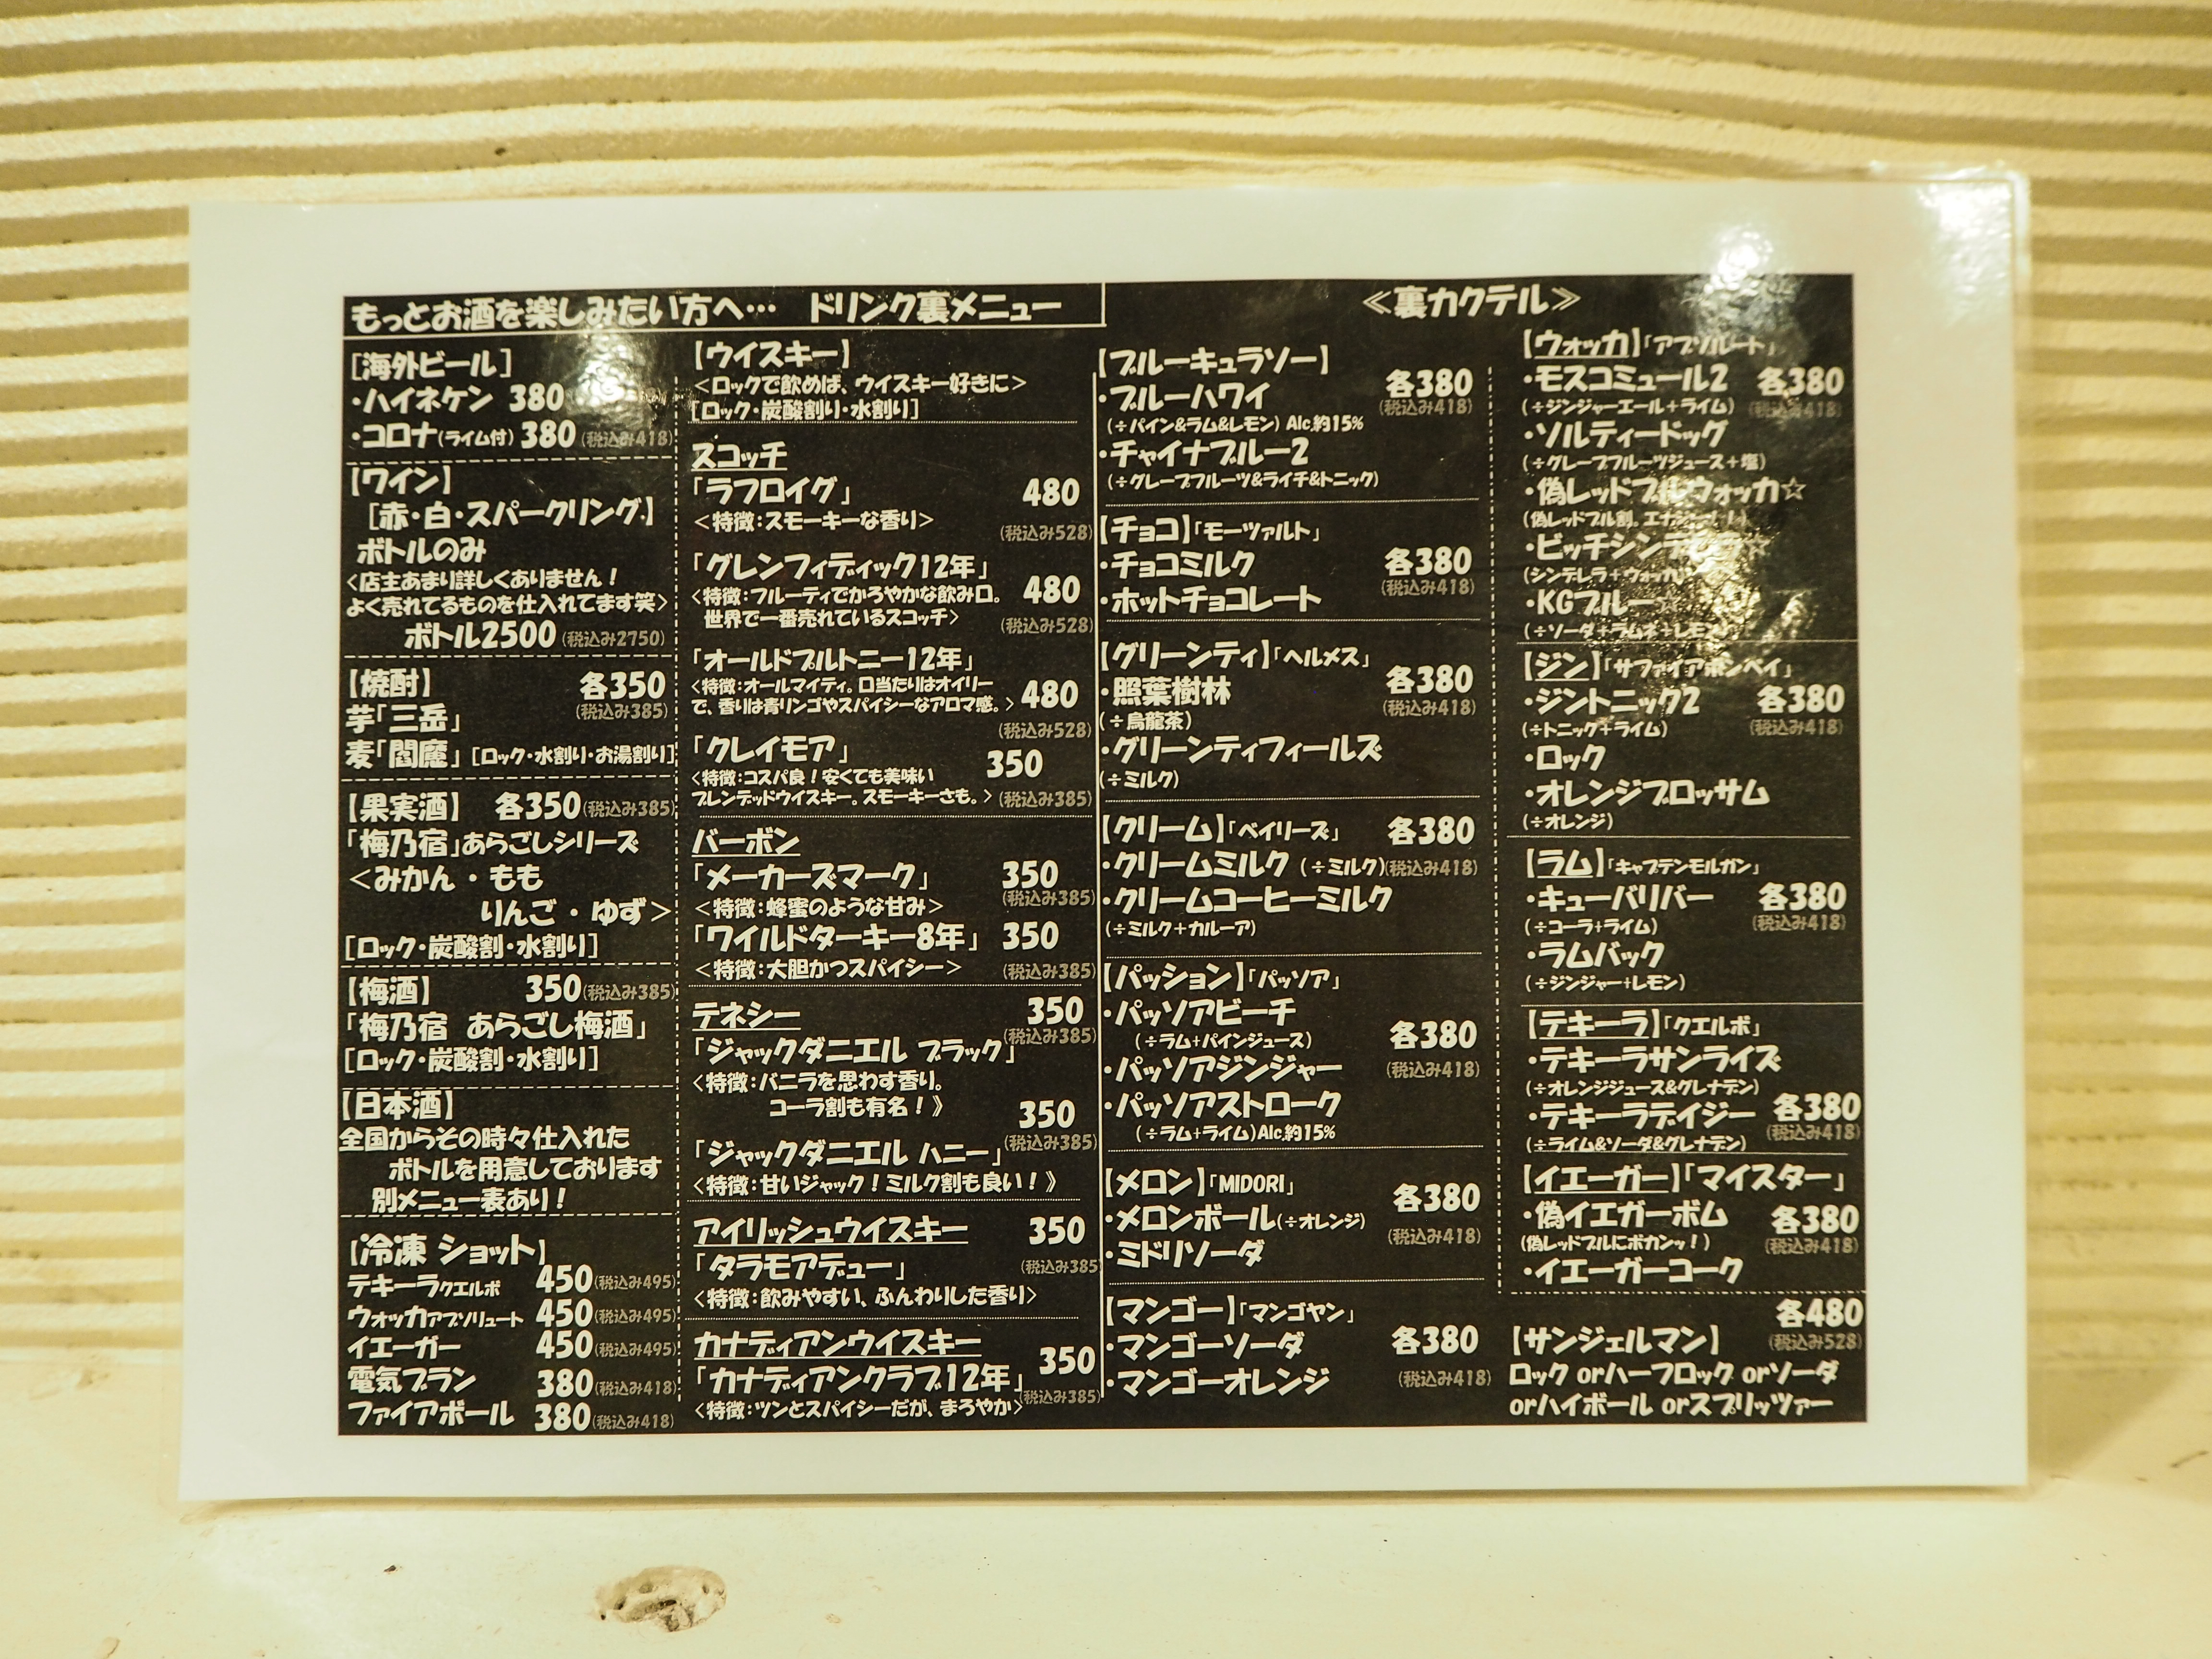 もっとお酒を楽しみたい方へ… ドリンク裏メニュー
[海外ビール]
・ハイネケン 380
・コロナ(ライム付) 380 (税込み418)
【ワイン】
[赤・白・スパークリング]
ボトルのみ
<店主あまり詳しくありません!
よく売れてるものを仕入れてます笑>
ボトル2500 (税込み2750)
【焼酎】 各350
芋「三岳」 (税込み385)
麦「閻魔」 [ロック・水割り・お湯割り]
【果実酒】 各350(税込み385)
「梅乃宿」あらごしシリーズ
<みかん・もも
りんご・ゆず>
[ロック・炭酸割・水割り]
【梅酒】 350(税込み385)
「梅乃宿 あらごし梅酒」
[ロック・炭酸割・水割り]
【日本酒】
全国からその時々仕入れた
ボトルを用意しております
別メニュー表あり!
【冷凍 ショット】
テキーラクエルボ 450(税込み495)
ウォッカアブソリュート 450(税込み495)
イエーガー 450(税込み495)
電気ブラン 380(税込み418)
ファイアボール 380(税込み418)
【ウイスキー】
<ロックで飲めば、ウイスキー好きに>
[ロック・炭酸割り・水割り]
スコッチ
「ラフロイグ」 480
<特徴:スモーキーな香り> (税込み528)
「グレンフィディック12年」
<特徴:フルーティでかろやかな飲み口。 480
世界で一番売れているスコッチ> (税込み528)
「オールドプルトニー12年」
<特徴:オールマイティ。口当たりはオイリー
で、香りは青リンゴやスパイシーなアロマ感。> 480
(税込み528)
「クレイモア」 350
<特徴:コスパ良!安くても美味い
ブレンデッドウイスキー。スモーキーさも。> (税込み385)
バーボン
「メーカーズマーク」 350
<特徴:蜂蜜のような甘み> (税込み385)
「ワイルドターキー8年」 350
<特徴:大胆かつスパイシー> (税込み385)
テネシー 350
(税込み385)
「ジャックダニエル ブラック」
<特徴:バニラを思わす香り。
コーラ割も有名!》
350
(税込み385)
「ジャックダニエル ハニー」
<特徴:甘いジャック!ミルク割も良い!》
アイリッシュウイスキー 350
「タラモアデュー」 (税込み385)
<特徴:飲みやすい、ふんわりした香り>
カナディアンウイスキー
「カナディアンクラブ12年」 350
(税込み385)
<特徴:ツンとスパイシーだが、まろやか>
≪裏カクテル≫
【ブルーキュラソー】
・ブルーハワイ 各380
(税込み418)
(÷パイン&ラム&レモン) Alc.約15%
・チャイナブルー2
(÷グレープフルーツ&ライチ&トニック)
【チョコ】「モーツァルト」
・チョコミルク 各380
(税込み418)
・ホットチョコレート
【グリーンティ】「ヘルメス」
・照葉樹林 各380
(税込み418)
(÷烏龍茶)
・グリーンティフィールズ
(÷ミルク)
【クリーム】「ベイリーズ」 各380
・クリームミルク (÷ミルク)(税込み418)
・クリームコーヒーミルク
(÷ミルク+カルーア)
【パッション】「パッソア」
・パッソアビーチ
(÷ラム+パインジュース) 各380
・パッソアジンジャー (税込み418)
・パッソアストローク
(÷ラム+ライム)Alc.約15%
【メロン】「MIDORI」 各380
・メロンボール(÷オレンジ) (税込み418)
・ミドリソーダ
【マンゴー】「マンゴヤン」
・マンゴーソーダ 各380
・マンゴーオレンジ (税込み418)
【ウォッカ】「アブソルート」
・モスコミュール2 各380
(÷ジンジャーエール+ライム) (税込み418)
・ソルティードッグ
(÷グレープフルーツジュース+塩)
・偽レッドブルウォッカ☆
(偽レッドブル割。
・ビッチシンデレラ☆
(シンデレラ+ウォッカ)
・KGブルー☆
(÷ソーダ+ラムネ+レモン)
【ジン】「サファイアボンベイ」
・ジントニック2 各380
(÷トニック+ライム) (税込み418)
・ロック
・オレンジブロッサム
(÷オレンジ)
【ラム】「キャプテンモルガン」
・キューバリバー 各380
(÷コーラ+ライム) (税込み418)
・ラムバック
(÷ジンジャー+レモン)
【テキーラ】「クエルボ」
・テキーラサンライズ
(÷オレンジジュース&グレナデン)
・テキーラデイジー 各380
(税込み418)
(÷ライム&ソーダ&グレナデン)
【イエーガー】「マイスター」
・偽イエガーボム 各380
(偽レッドブルにボカンッ!) (税込み418)
・イエーガーコーク
各480
【サンジェルマン】 (税込み528)
ロック orハーフロック orソーダ
orハイボール orスプリッツァー